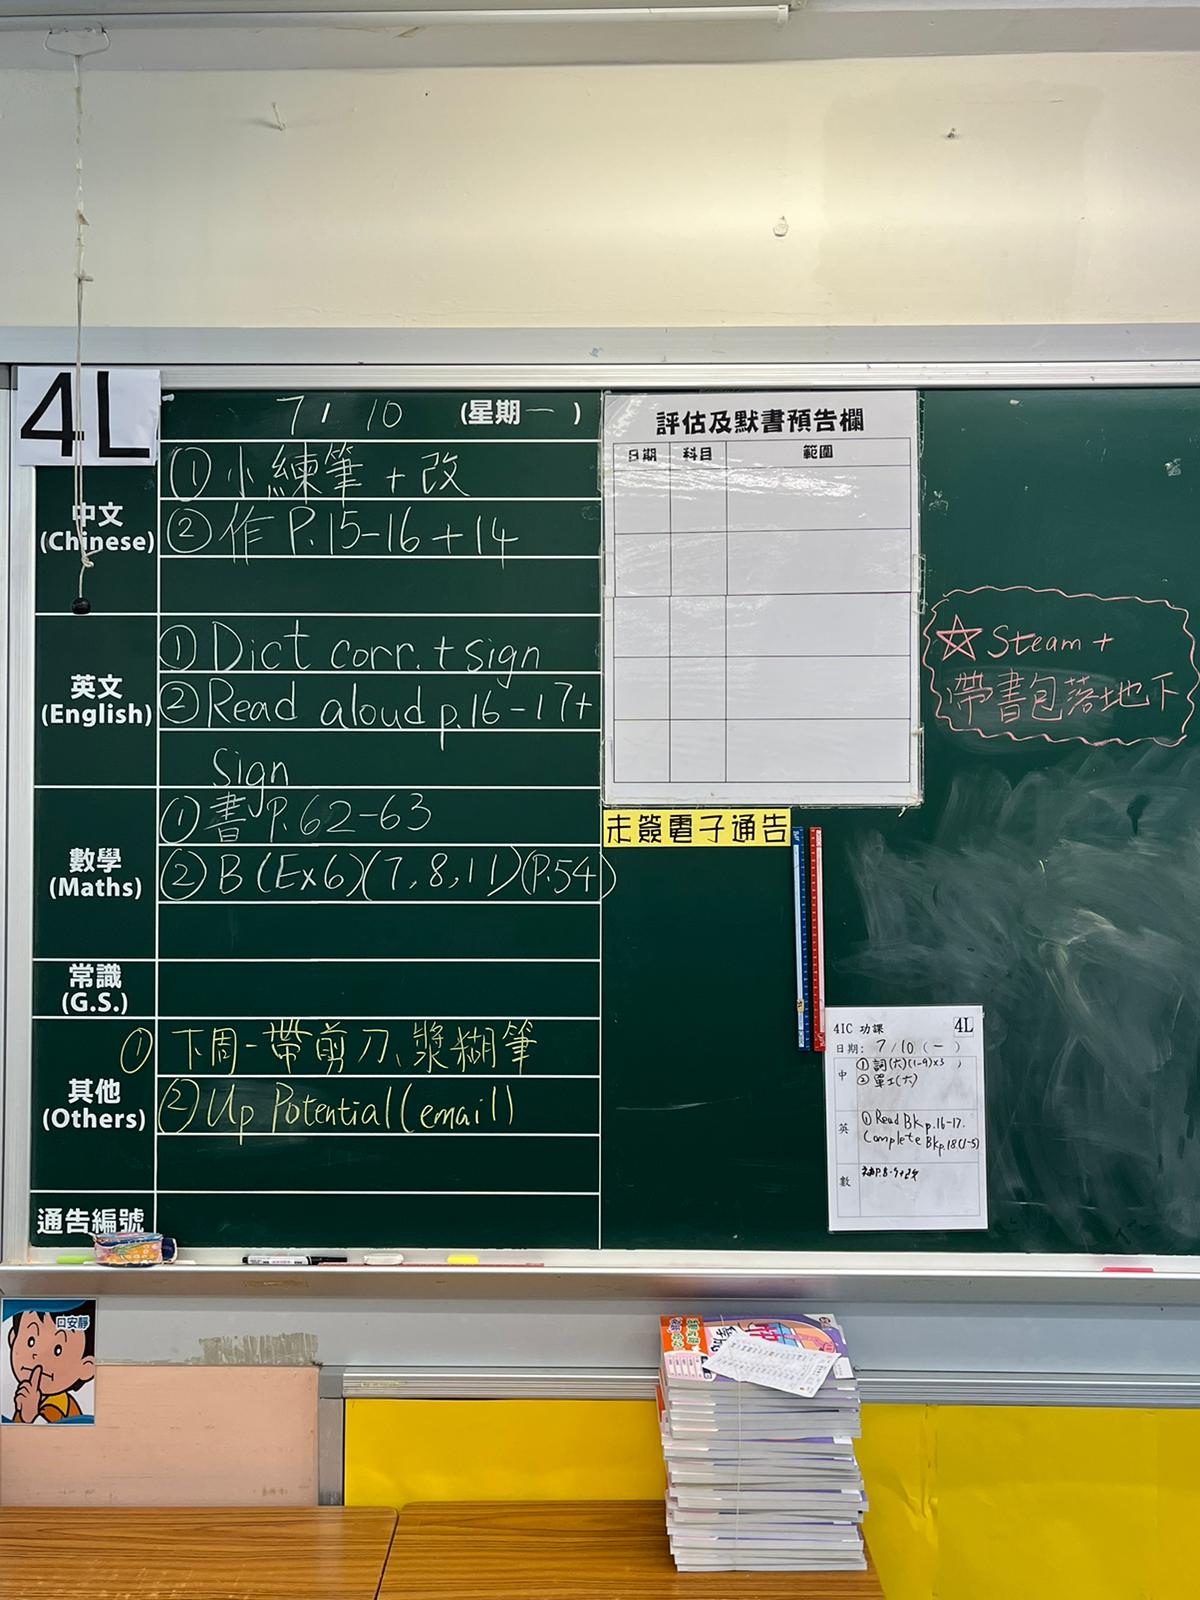 4L
7/10 (星期一)
中文
(Chinese)
① 小練筆 + 改
② 作 P.15-16 + 14
英文
(English)
① Dict corr. + sign
② Read aloud p.16-17 +
Sign
數學
(Maths)
① 書 P.62-63
② B (Ex6) (7, 8, 11) (P.54)
常識
(G.S.)
其他
(Others)
① 下周-帶剪刀、漿糊筆
② Up Potential (email)
通告編號
評估及默書預告欄
日期 科目 範圍
☆ Steam +
帶書包落地下
未簽電子通告
4IC 功課 4L
日期: 7/10 (一)
中
① 詞(六)(1-9)x3
② 單工(六)
英
① Read Bk p.16-17.
Complete Bk p.18.(1-5)
數
口安靜